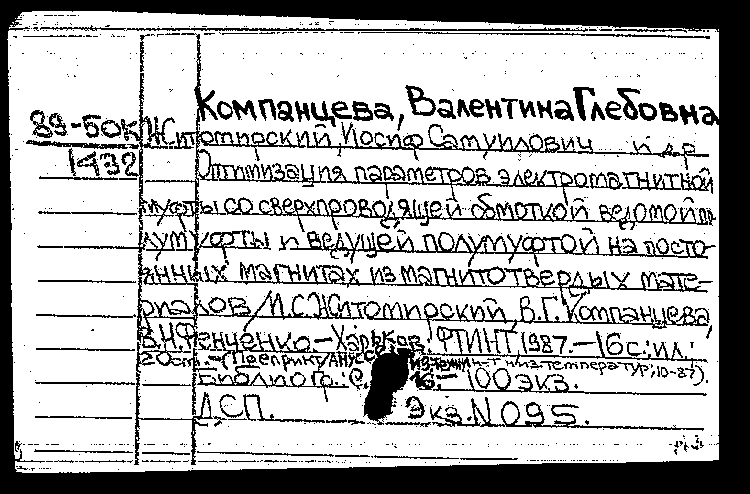 Компанцева, Валентина Глебовна
89-БОК Житомирский, Иосиф Самуилович и др
1432 Оптимизация параметров электромагнитной
муфты со сверхпроводящей обмоткой ведомой по
лумуфты и ведущей полумуфтой на посто-
янных магнитах из магнитотвердых мате-
риалов / И.С. Житомирский, В.Г. Компанцева,
В.Н. Фенченко. – Харьков: ФТИНТ, 1987. – 16 с.: ил.;
20 см. – (Препринт / АН УССР, температур; 10-87).
Библиогр.: с. 16. – 100 экз.
ДСП. Экз. N 095.